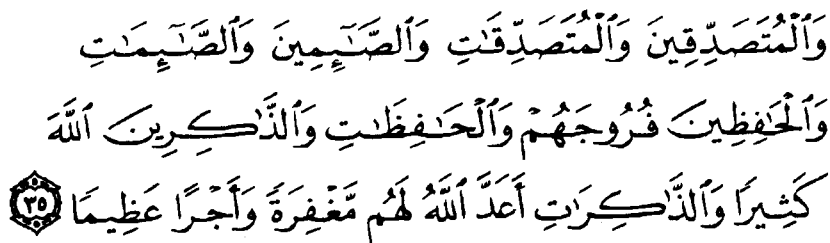 وَٱلْمُتَصَدِّقِينَ وَٱلْمُتَصَدِّقَٰتِ وَٱلصَّٰٓئِمِينَ وَٱلصَّٰٓئِمَٰتِ
وَٱلْحَٰفِظِينَ فُرُوجَهُمْ وَٱلْحَٰفِظَٰتِ وَٱلذَّٰكِرِينَ ٱللَّهَ
كَثِيرًا وَٱلذَّٰكِرَٰتِ أَعَدَّ ٱللَّهُ لَهُم مَّغْفِرَةً وَأَجْرًا عَظِيمًا ٣٥